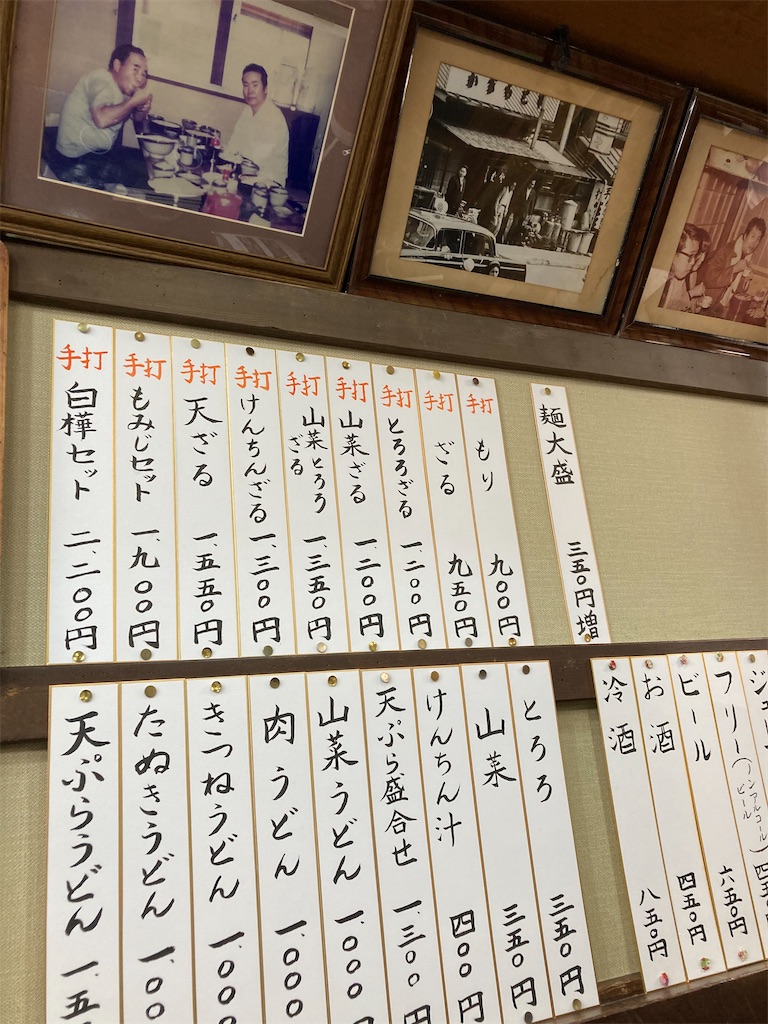 麺大盛 三五〇円増
手打 もり 九〇〇円
手打 ざる 九五〇円
手打 とろろざる 一、二〇〇円
手打 山菜ざる 一、二〇〇円
手打 山菜とろろ
ざる 一、三五〇円
手打 けんちんざる 一、三〇〇円
手打 天ざる 一、五五〇円
手打 もみじセット 一、九〇〇円
手打 白樺セット 二、二〇〇円
ジュー
フリー(ノンアルコール
ビール) 四五
ビール 六五〇円
お酒 四五〇円
冷酒 八五〇円
とろろ 三五〇円
山菜 三五〇円
けんちん汁 四〇〇円
天ぷら盛合せ 一、三〇〇円
山菜うどん 一、〇〇〇円
肉うどん 一、〇〇〇
きつねうどん 一、〇〇〇
たぬきうどん 一、〇〇
天ぷらうどん 一、五